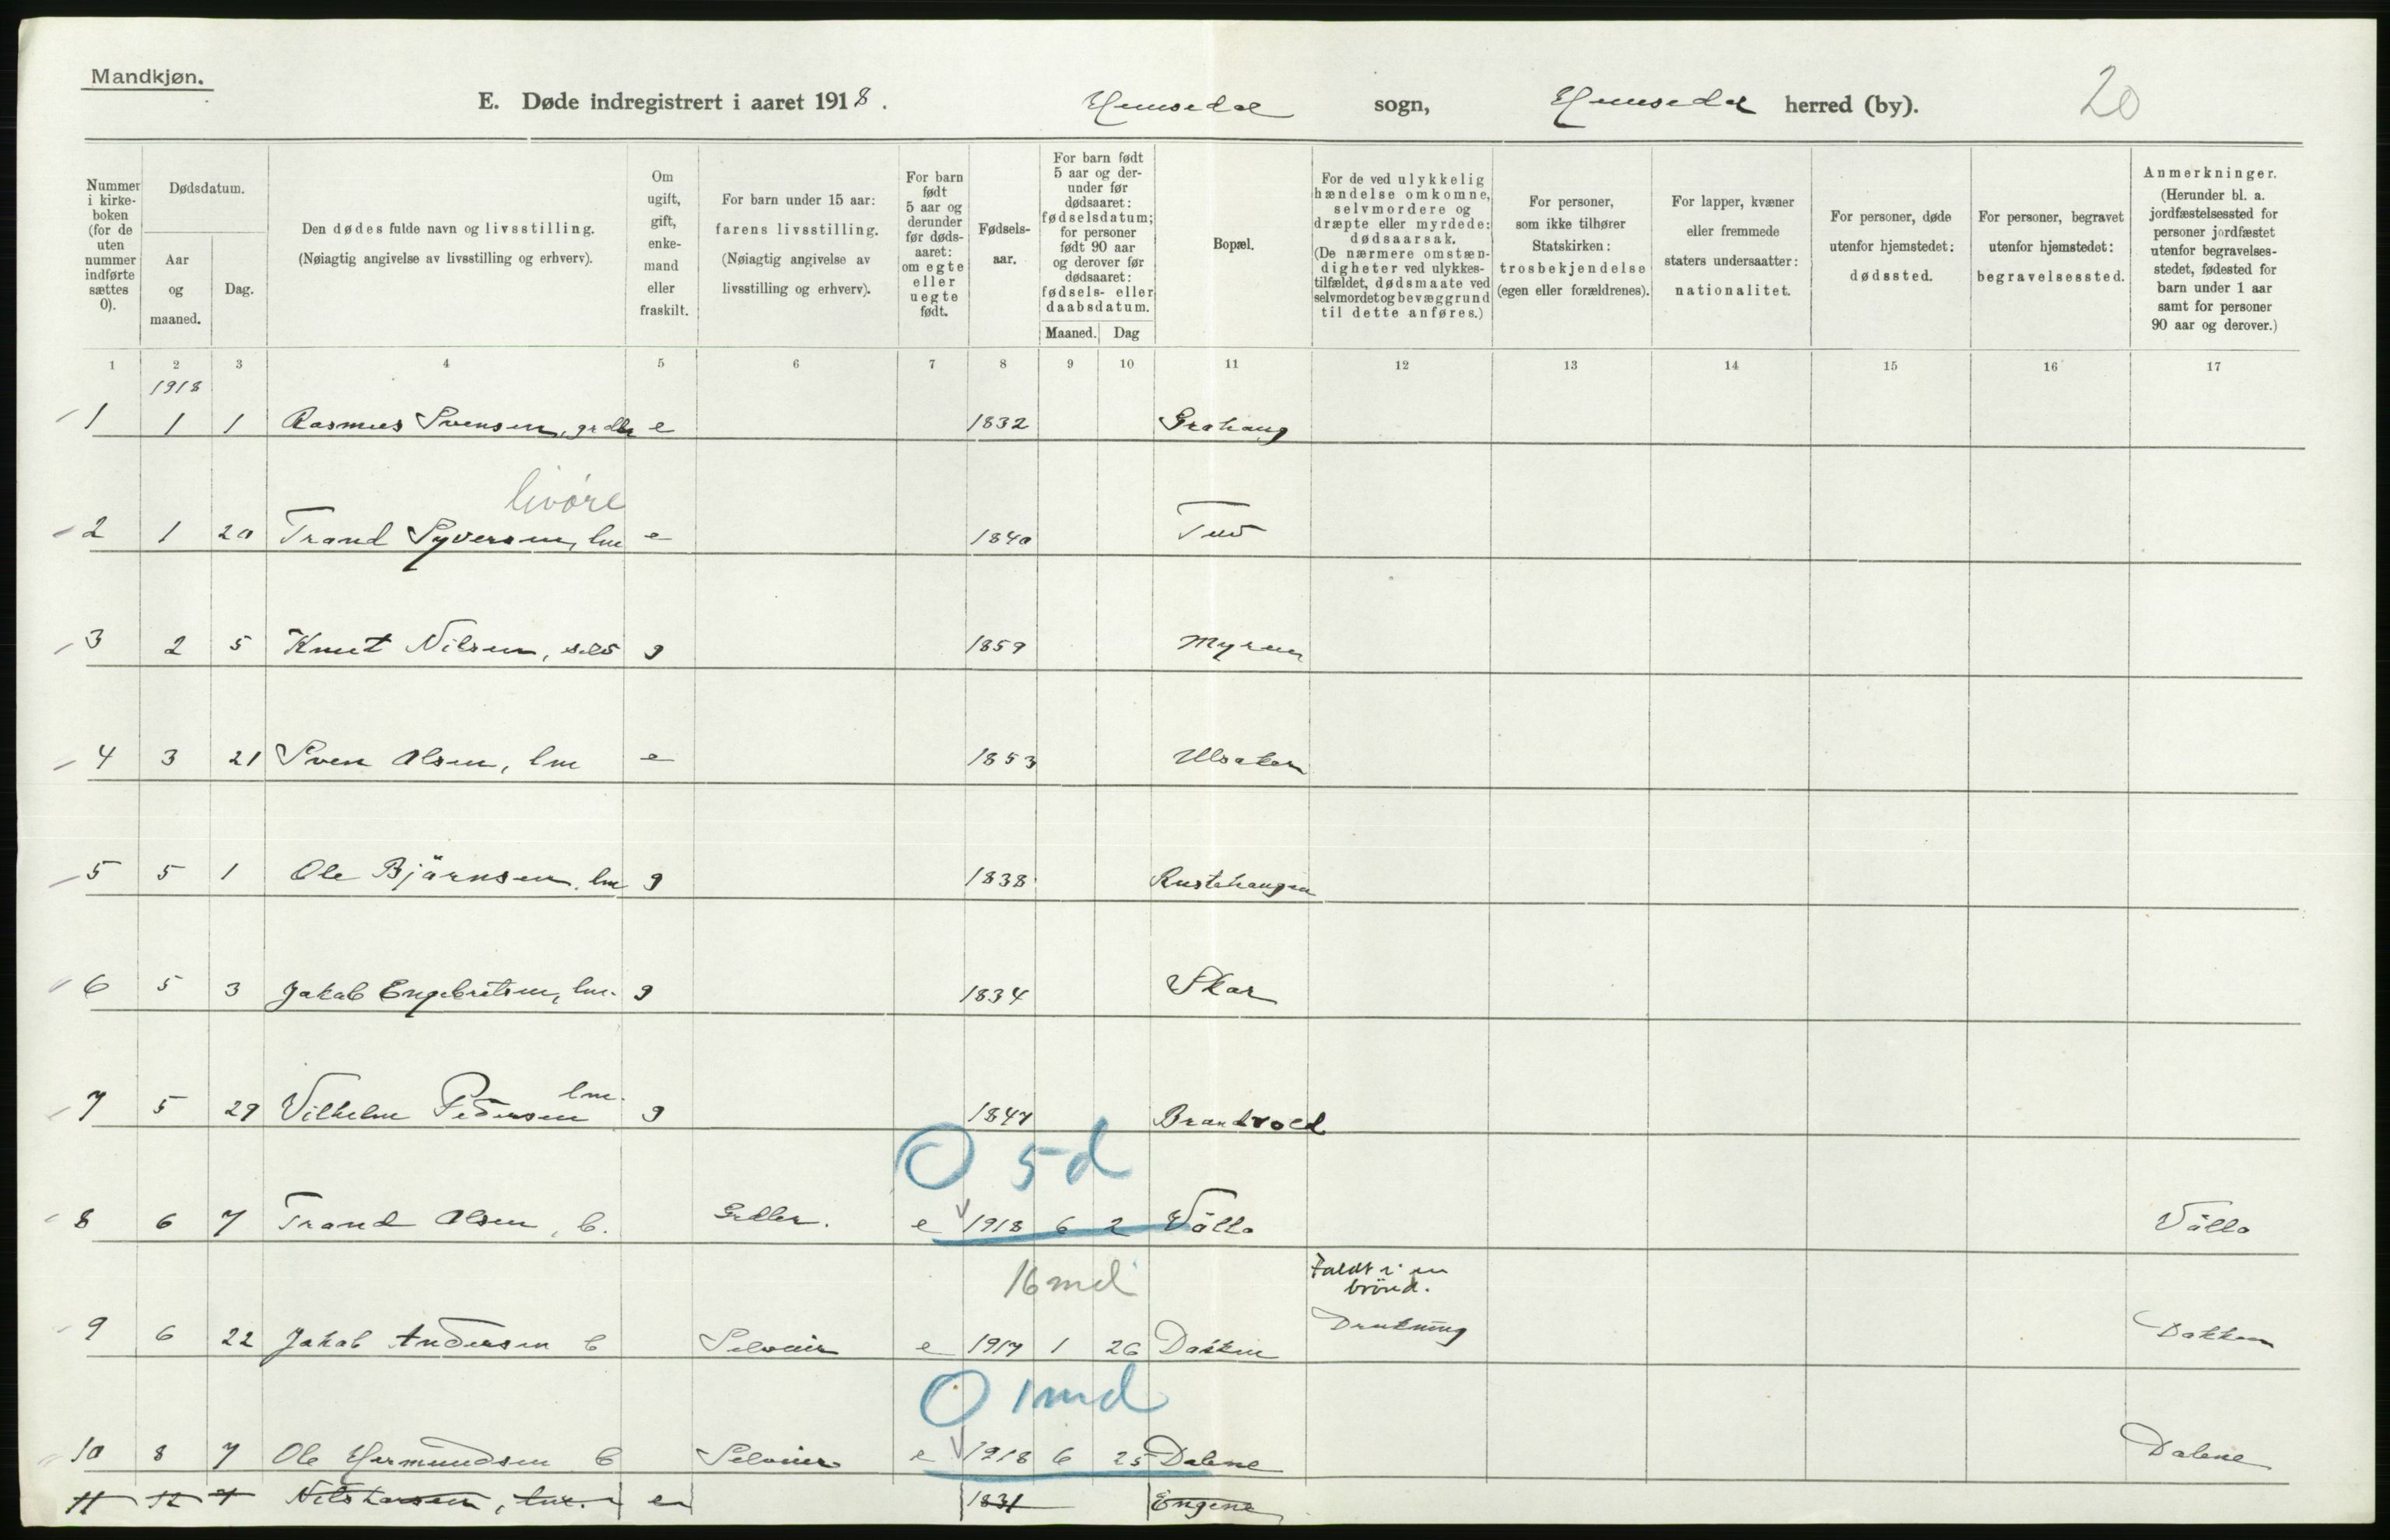 Mandkjøn.
E. Døde indregistrert i aaret 1918. Hemsedal sogn, Hemsedal herred (by). 20
Nummer i kirke-boken (for de uten nummer indførte sættes 0).
Dødsdatum.
Aar og maaned.
Dag.
Den dødes fulde navn og livsstilling.
(Nøiagtig angivelse av livsstilling og erhverv).
Om ugift, gift, enke-mand eller fraskilt.
For barn under 15 aar: farens livsstilling.
(Nøiagtig angivelse av livsstilling og erhverv).
For barn født 5 aar og derunder før døds-aaret: om egte eller uegte født.
Fødsels-aar.
For barn født 5 aar og der-under før dødsaaret: fødselsdatum; for personer født 90 aar og derover før dødsaaret: fødsels- eller daabsdatum.
Maaned. Dag
Bopæl.
For de ved ulykkelig hændelse omkomne, selvmordere og dræpte eller myrdede: dødsaarsak.
(De nærmere omstæn-digheter ved ulykkes-tilfældet, dødsmaate ved selvmordet og bevæggrund til dette anføres.)
For personer, som ikke tilhører Statskirken: trosbekjendelse (egen eller forældrenes).
For lapper, kvæner eller fremmede staters undersaatter: nationalitet.
For personer, døde utenfor hjemstedet: dødssted.
For personer, begravet utenfor hjemstedet: begravelsessted.
Anmerkninger.
(Herunder bl. a. jordfæstelsessted for personer jordfæstet utenfor begravelses-stedet, fødested for barn under 1 aar samt for personer 90 aar og derover.)
1 2 3 4 5 6 7 8 9 10 11 12 13 14 15 16 17
1918
1 1 1 Rasmus Svensen, grdbr e 1832 Grøthaug
livøre
2 1 20 Trond Syversen, lm e 1840 Tuv
3 2 5 Knut Nilsen, selv g 1859 Myren
4 3 21 Sven Olsen, lm e 1853 Ulsaker
5 5 1 Ole Björnsen, lm g 1838 Rustehaugen
6 5 3 Jakob Engebretsen, lm. g 1834 Skar
lm.
7 5 29 Vilhelm Pedersen g 1847 Brandvold
O 5d
8 6 7 Trond Olsen, b. Grdbr. e 1918 6 2 Vålla Vålla
16 md Faldt i en
brönd.
9 6 22 Jakob Andersen b Selveier e 1917 1 26 Dokken Drukning Dokken
O 1md
10 8 7 Ole Hermundsen b Selveier e 1918 6 25 Dalene Dalene
11 12 7 Nils Larsen, lm. e 1831 Engene